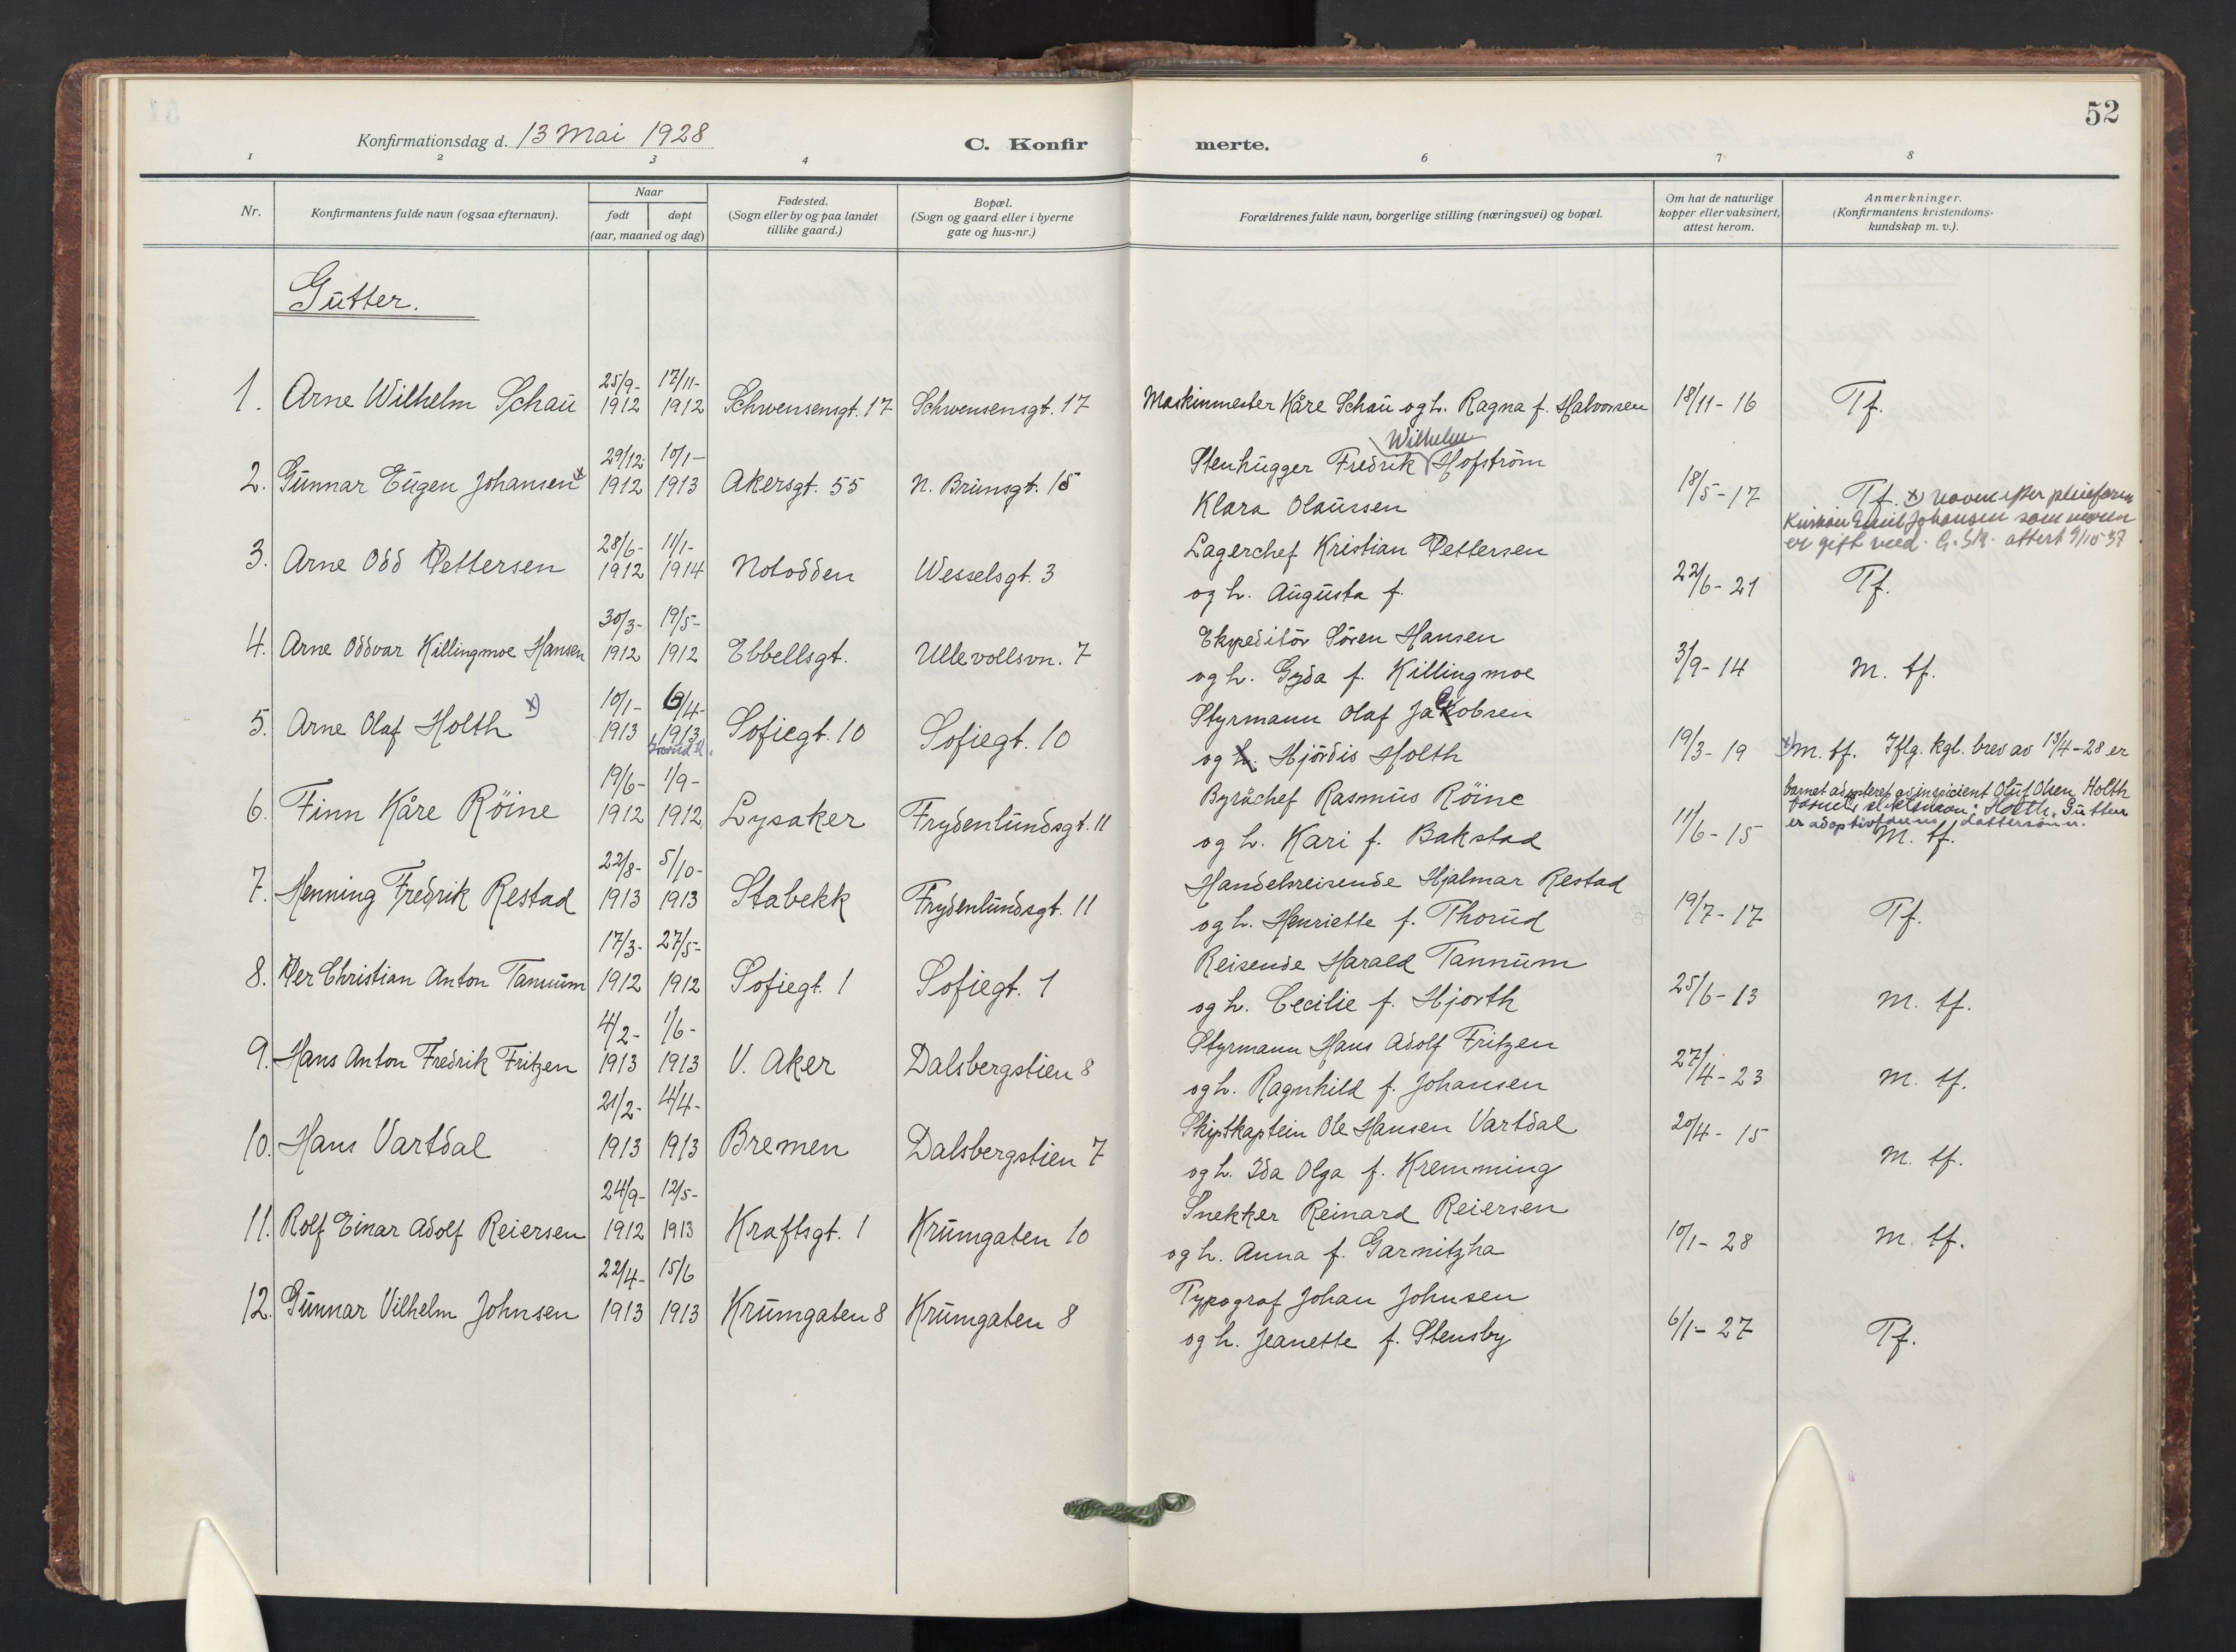 52
Konfirmationsdag d. 13 Mai 1928
C. Konfirmerte.
1 2 3 4 6 7 8
Nr.
Konfirmantens fulde navn (ogsaa efternavn).
Naar
født døpt
(aar, maaned og dag)
Fødested.
(Sogn eller by og paa landet
tillike gaard.)
Bopæl.
(Sogn og gaard eller i byerne
gate og hus-nr.)
Forældrenes fulde navn, borgerlige stilling (næringsvei) og bopæl.
Om hat de naturlige
kopper eller vaksinert,
attest herom.
Anmerkninger.
(Konfirmantens kristendoms-
kundskap m. v.).
Gutter.
1. Arne Wilhelm Schau 25/9-1912 17/11-1912 Schwensensgt. 17 Schwensensgt. 17 Maskinmester Kåre Schau og h. Ragna f. Halvorsen 18/11-16 Tf.
2. Gunnar Eugen Johansen x 29/12-1912 10/1-1913 Akersgt. 55 N. Brunsgt. 15 Stenhugger Fredrik Wilhelm Hofström
Klara Olaussen 18/5-17 Tf. x) navn efter pleiefaren
Emil Johansen som moren
er gift med. attest 9/10 37
3. Arne Odd Pettersen 28/6-1912 11/1-1914 Notodden Wesselsgt. 3 Lagerchef Kristian Pettersen
og h. Augusta f. 22/6-21 Tf.
4. Arne Oddvar Killingmoe Hansen 30/3-1912 19/5-1912 Ebbellsgt. Ullevollsvn. 7 Ekspeditör Sören Hansen
og h. Gyda f. Killingmoe 3/9-14 M. tf.
5. Arne Olaf Holth x) 10/1-1913 6/4-1913 Sofiegt. 10 Sofiegt. 10 Styrmann Olaf Jacobsen
og h. Hjördis Holth 19/3-19 x) M. tf. Iflg. kgl. brev av 13/4-28 er
barnet adopteret av inspicient Oluf Olsen Holth
barnets slektsnavn: Holth. Gutten
er adoptivfarens dattersönn.
6. Finn Kåre Röine 19/6-1912 1/9-1912 Lysaker Frydenlundsgt. 11 Byråchef Rasmus Röine
og h. Kari f. Bakstad 11/6-15 M. tf.
7. Henning Fredrik Restad 22/8-1913 5/10-1913 Stabekk Frydenlundsgt. 11 Handelsreisende Hjalmar Restad
og h. Henriette f. Thorud 19/7-17 Tf.
8. Per Christian Anton Tannum 17/3-1912 27/5-1912 Sofiegt. 1 Sofiegt. 1 Reisende Harald Tannum
og h. Cecilie f. Hjorth 25/6-13 M. tf.
9. Hans Anton Fredrik Fritzen 4/2-1913 1/6-1913 V. Aker Dalsbergstien 8 Styrmann Hans Adolf Fritzen
og h. Ragnhild f. Johansen 27/4-23 M. tf.
10. Hans Vartdal 21/2-1913 4/4-1913 Bremen Dalsbergstien 7 Skipskaptein Ole Hansen Vartdal
og h. Ida Olga f. Kremming 20/4-15 M. tf.
11. Rolf Einar Adolf Reiersen 24/9-1912 12/5-1913 Kraftsgt. 1 Krumgaten 10 Snekker Reinard Reiersen
og h. Anna f. Garnitzha 10/1-28 M. tf.
12. Gunnar Vilhelm Johnsen 22/4-1913 15/6 1913 Krumgaten 8 Krumgaten 8 Typograf Johan Johnsen
og h. Jeanette f. Stensby 6/1-27 Tf.